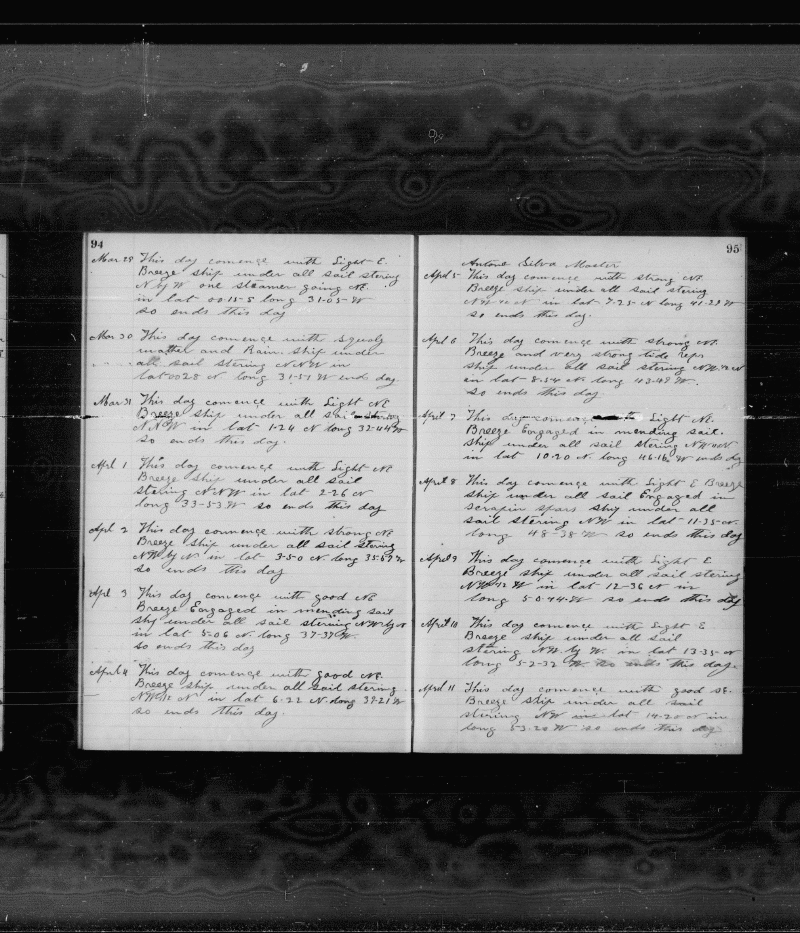 94
Mar 29 This day comence with Light E.
Breeze ship under all sail stering
N by W one steamer going NE.
in lat 00-15-S long 31-05-W
so ends this day
Mar 30 This day comence with Squaly
and Rain. ship under
all sail stering NNW in
lat 0028 N long 31-51 W ends day
Mar 31 This day comence with Light NE
Breeze ship under all sail stering
NNW in lat 1-24 long 32-44 W
so ends this day.
Aprl 1 This day comence with Light NE
Breeze ship under all sail
stering NNW in lat 2-26 N
long 33-53 W so ends this day
Apl 2 This day comence with strong NE
Breeze ship under all sail stering
NW by N in lat 3-50 N long W
so ends this day
Aprl 3 This day comence with good NE
Breeze Engaged in mending sail
ship under all sail stering NW by N
in lat 5-06 N long 37-37 W.
so ends this day
Aprl 4 This day comence with good NE.
Breeze ship under all sail stering
in lat 6-22 N long 39-21 W
so ends this day.
95
Antone Silva Master
Aprl 5 This day comence with strong NE.
Breeze ship under all sail stering
in lat 7-25 N long 41-29 W
so ends this day.
Aprl 6 This day comence with strong NE.
Breeze and very strong tide reps
ship under all sail stering
in lat 8-54 N. long 43-49 W.
so ends this day.
Aprl 7 This day comence Light NE.
Breeze Engaged in mending sail.
ship under all sail stering
in lat 10-20 N. long 46-16 W ends day
April 8 This day comence with Light E Breeze
ship under all sail Engaged in
scrapin spars ship under all
sail stering NW in lat 11-35-N.
long 48-38 W so ends this day
April 9 This day comence with Light E
Breeze ship under all sail stering
W in lat 12-36 N in
long 50-44-W so ends this day
April 10 This day comence with Light E
Breeze ship under all sail
stering NW by W. in lat 13-35-N
long 52-32 W so ends this day.
Aprl 11 This day comence with good SE.
Breeze ship under all sail
stering NW in lat 14-20 N in
long 53-20 W so ends this day